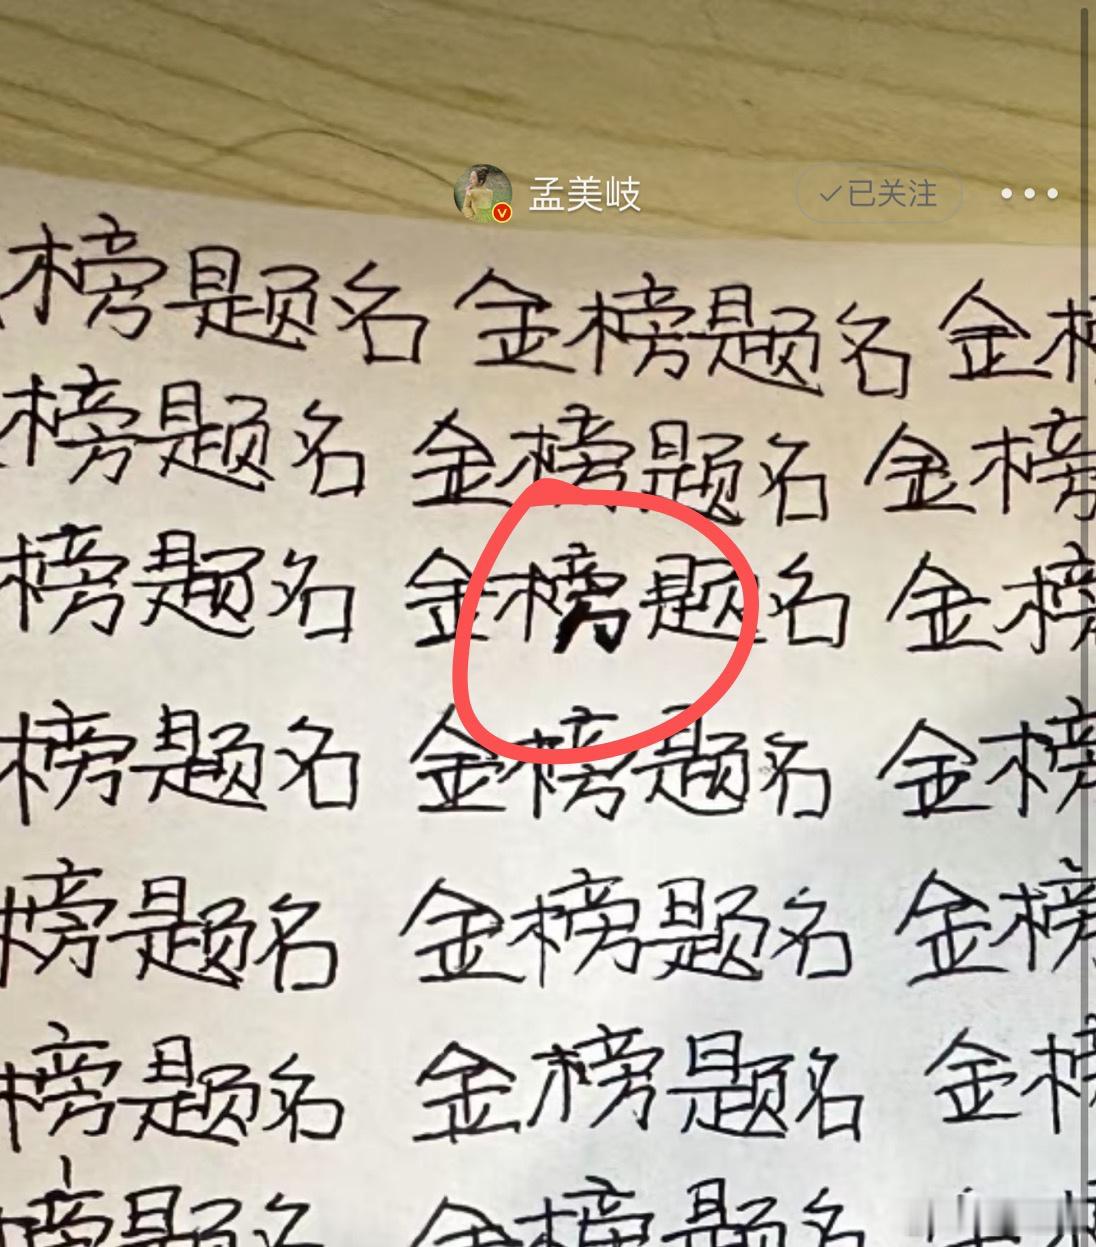 孟美岐
已关注
榜题名 金榜题名 金榜
榜题名 金榜题名 金榜
榜题名 金榜题名 金榜
榜题名 金榜题名 金榜
榜题名 金榜题名 金榜
榜题名 金榜题名 金榜
榜题名 金榜题名